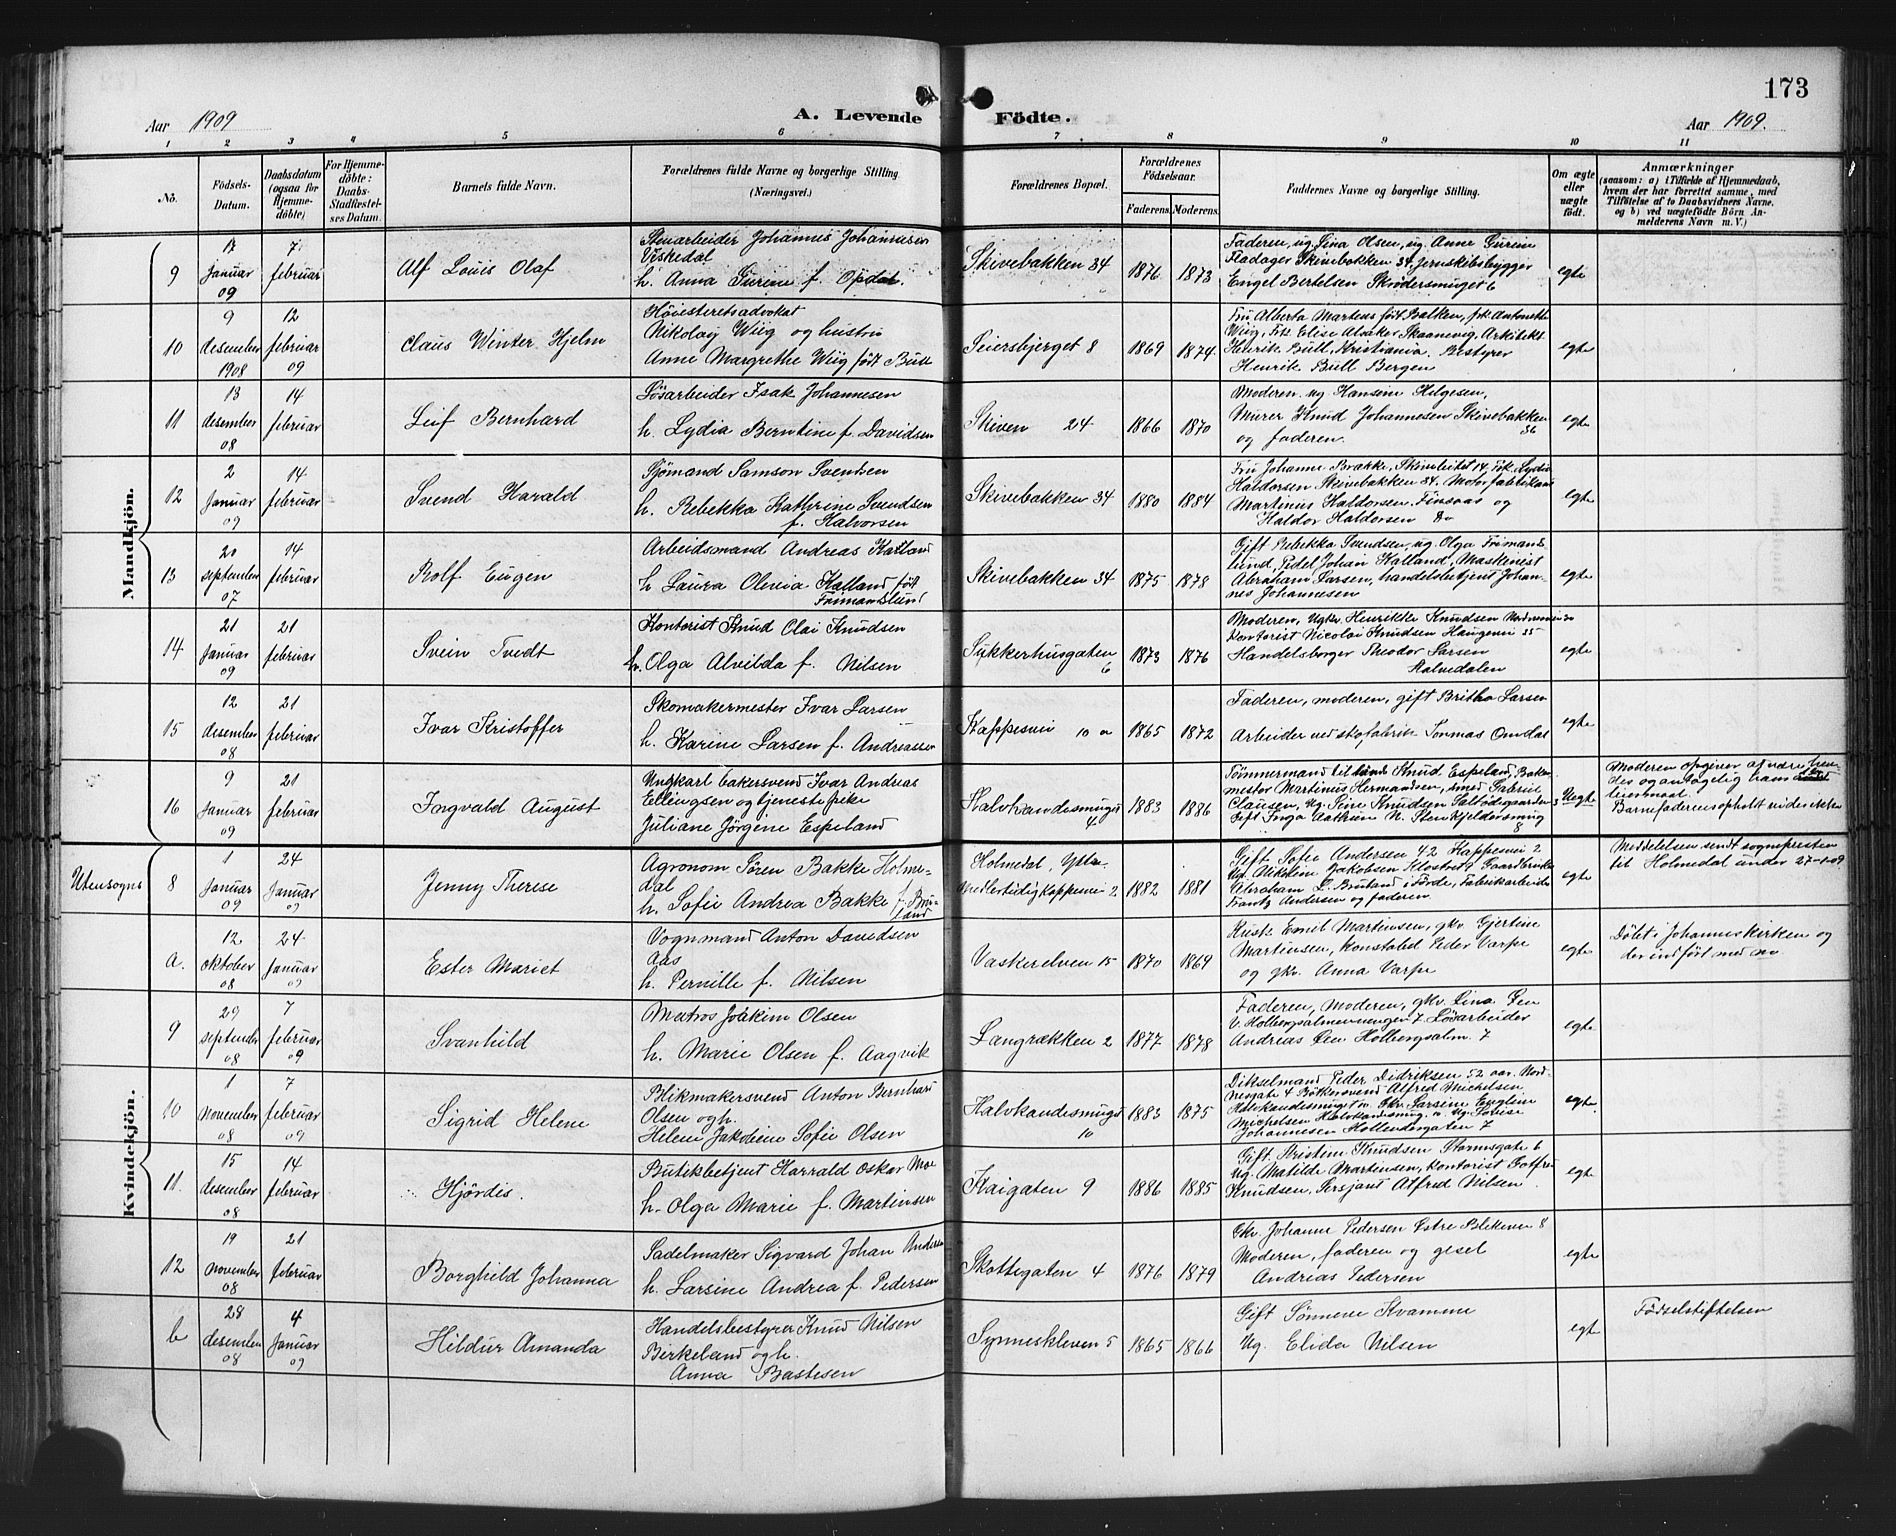 173
Aar 1909
A. Levende Födte.
Aar 1909.
1 2 3 4 5 6 7 8 9 10 11
No.
Födsels-Datum.
Daabsdatum (ogsaa for Hjemme-döbte)
For Hjemme-döbte: Daabs-Stadfæstel-ses Datum.
Barnets fulde Navn.
Forældrenes fulde Navne og borgerlige Stilling (Næringsvei.)
Forældrenes Bopæl.
Forældrenes Födselsaar.
Faderens.
Moderens.
Faddernes Navne og borgerlige Stilling.
Om ægte eller uægte födt.
Anmærkninger
(saasom: a) i Tilfælde af Hjemmedaab, hvem der har forrettet samme, med Tilföielse af to Daabsvidners Navne. og b) ved uægtefödte Börn An-melderens Navn m. V.)
Mandkjön.
9
17 Januar 09
7 februar
Alf Louis Olaf
Stenarbeider Johannes Johannesen
Viskedal
h. Anna Gurine f. Opdal.
Skivebakken 34
1876 1873
Faderen, ug. Lina Olsen, ug. Anne Gurine
Fladager Skivebakken 34, Jernskibsbygger
Engel Bertelsen Skrödersmuget 6
egte
10
9 desember 1908
12 februar 09
Claus Winter Hjelm
Höiesteretsadvokat
Nikolay Wiig og hustru
Anne Margrethe Wiig födt Bull
Feiersbjerget 8
1869 1874.
Fru Alberta Martens födt Balken, frk. Antonette
Wiig, Frk. Elise Alsaker, Skaanevig, Arkitekt
Henrik Bull, Kristiania. Bestyrer
Henrik Bull Bergen
egte
11
13 desember 08
14 februar
Leif Bernhard
Lösarbeider Isak Johannesen
h. Lydia Berntine f. Davidsen
Skiven 24
1866 1870
Moderen. ug Hansine Helgesen,
Murer Knud Johannesen Skivebakken 36
og faderen.
egte
12
2 Januar 09
14 februar
Svend Harald
Sjömand Samson Svendsen
h. Rebekka Kathrine Svendsen
f. Halvorsen
Skivebakken 34
1880 1884
Fru Johanne Brække, 14, Frk. Lydia
Haldorsen Skivebakken 34. Motorfabrikant
Martinus Haldorsen, Finsaas og
Haldor Haldorsen Do
egte
13
20 september 07
14 februar
Rolf Eugen
Arbeidsmand Andreas Katland
h. Laura Olevia Katland, födt
Frimandslund
Skivebakken 34
1875 1878
Gift Rebekka Svendsen, ug. Olga Frimands-
lund, Pedel Johan Katland, Maskinist
Abraham Larsen, handelsbetjent Johan-
nes Johannesen
egte
14
21 Januar 09
21 februar
Svein Tvedt
Kontorist Knud Olai Knudsen
h. Olga Alvilda f. Nilsen
Sukkerhusgaten 6
1873 1876
Moderen, Ugkr. Henrikke Knudsen
Kontorist Nicolai Knudsen Haugenei 35
Handelsborger Theodor Larsen
Kalvedalen
egte
15
12 desember 08
21 februar
Ivar Kristoffer
Skomakermester Ivar Larsen
h. Karine Larsen f. Andreassen
Kappesmei 10 a
1865 1872
Faderen, moderen, gift Britha Larsen
Arbeider ved skofabrik Tönmas Omdal
egte
16
9 Januar 09
21 februar
Ingvald August
Ungkarl bakersvend Ivar Andreas
Ellingsen og tjenestepike
Juliane Jörgine Espeland
Kalvkandesmuget 4
1883 1886
Tömmermand Knud Espeland, Baker-
mester Martinus Hermandsen, smed Gabriel
Clausen, ug. Sine Knudsen Saltbodsgaarden 3
Gift Inga Cathrine N. Stenkjeldersmug 8
Uegte
Moderen opgiver at være
des og antagelig hans
leiersmaal.
Barnefaderens opholt vides ikke
Kvindekjön.
Utensogns
8
1 Januar 09
24 Januar 09
Jenny Therese
Agronom Sören Bakke Holme-
dal
h. Sofie Andrea Bakke f. Bru-
land
Holmedal, Ytre.
Midlertidig Kappesmei 2
1882 1881
Gift Sofie Andersen 42 Kappesmei 2
Ug. Nikoline Jakobsen Klostret, Gaardbruker
Abraham L. Bruland i Förde, Fabrikarbeider
Frantz Andersen og faderen
egte
Meddelelsen sendt sognepresten
til Holmedal under 27-1-09
a.
12 oktober 08
24 Januar 09
Ester Mariet
Vognmand Anton Davidsen
Aas
h. Pernille f. Nilsen
Vaskerelven 15
1870 1869
Kusk Emil Martinsen, gkv. Gjertine
Martinsen, konstabel Peder Varpe
og gkv. Anna Varpe
egte
Döbt i Johanneskirken og
der indfört med no
9
29 september 08
7 februar 09
Svanhild
Matros Joakim Olsen
h. Marie Olsen f. Aagvik
Langrækken 2
1877 1878
Faderen, Moderen, gkv. Lina Øen
V. Holbergsalmenningen 7 Lösarbeider
Andreas Øen Holbergsalm. 7
egte
10
1 November 08
7 februar 09
Sigrid Helene
Blikmakersvend Anton Bernhard
Olsen og h.
Helene Jakobine Sofie Olsen
Halvkandesmuget 10
1883 1875
Dikselmand Peder Didriksen 52 aar. Nord-
nesgate 4 Bötkersvend Alfred Michelsen
Halvkandesmuget 10. Gkv. Larsine Engline
Michelsen Halvkandesmug. 10 Ug. Lovise
Johannesen Hollendergaten 7
egte
11.
15 desember 08
14 februar
Hjördis.
Butikbetjent Harrald Oskar Moe
h. Olga Marie f. Martinsen
Kaigaten 9
1886 1885
Gift. Kristine Knudsen Stormsgate 6
Ug. Matilde Martinsen, Kontorist Gotfred
Knudsen, Sersjant Alfred Nilsen
egte
12
19 November 08
21 februar
Borghild Johanna
Sadelmaker Sigvard Johan Andersen
h. Larsine Andrea f. Pedersen
Skottegaten 4
1876 1879
Gkv. Johanne Pedersen Østre Blekevei 8
Moderen, faderen og gesel
Andreas Pedersen
egte
b
28 desember 08
4 Januar 09
Hildur Amanda
Handelsbestyrer Knud Nilsen
Birkeland og h.
Anna Bastesen
Synneskleven 5
1865 1866
Gift Sönnene Kvamme
Ug. Elida Nilsen
egte
Födselstiftelsen